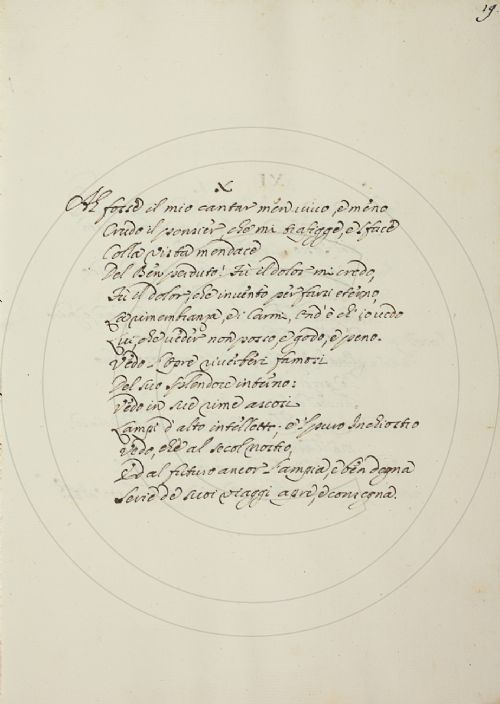 19.
X
Ah fosse il mio cantar men vivo, e meno
Crudo il pensier che mi trafigge, e sface
Colla vista mendace
Del Ben perduto! Fù il dolor mi credo,
Fù il dolor, che inventò per farsi eterno,
e i Carmi, ond'è ch'io vedo
Lui, che veder non posso, e godo, e peno.
Vedo l'opre viventi e i famosi
Del suo splendore interno:
Vedo in sue rime ascosi
Lampi d'alto intelletto, e'l puro Inchiostro
Vedo, che al secol nostro,
Ed al futuro ancor l'ampia, e ben degna
Serie de suoi viaggi apre, e consegna.